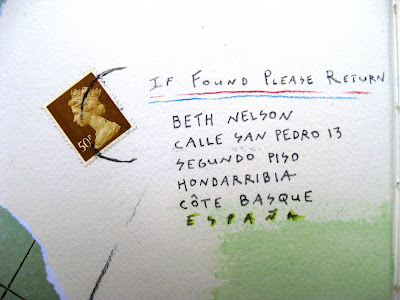 IF FOUND PLEASE RETURN
BETH NELSON
CALLE SAN PEDRO 13
SEGUNDO PISO
HONDARRIBIA
CÔTE BASQUE
ESPAÑA
50P